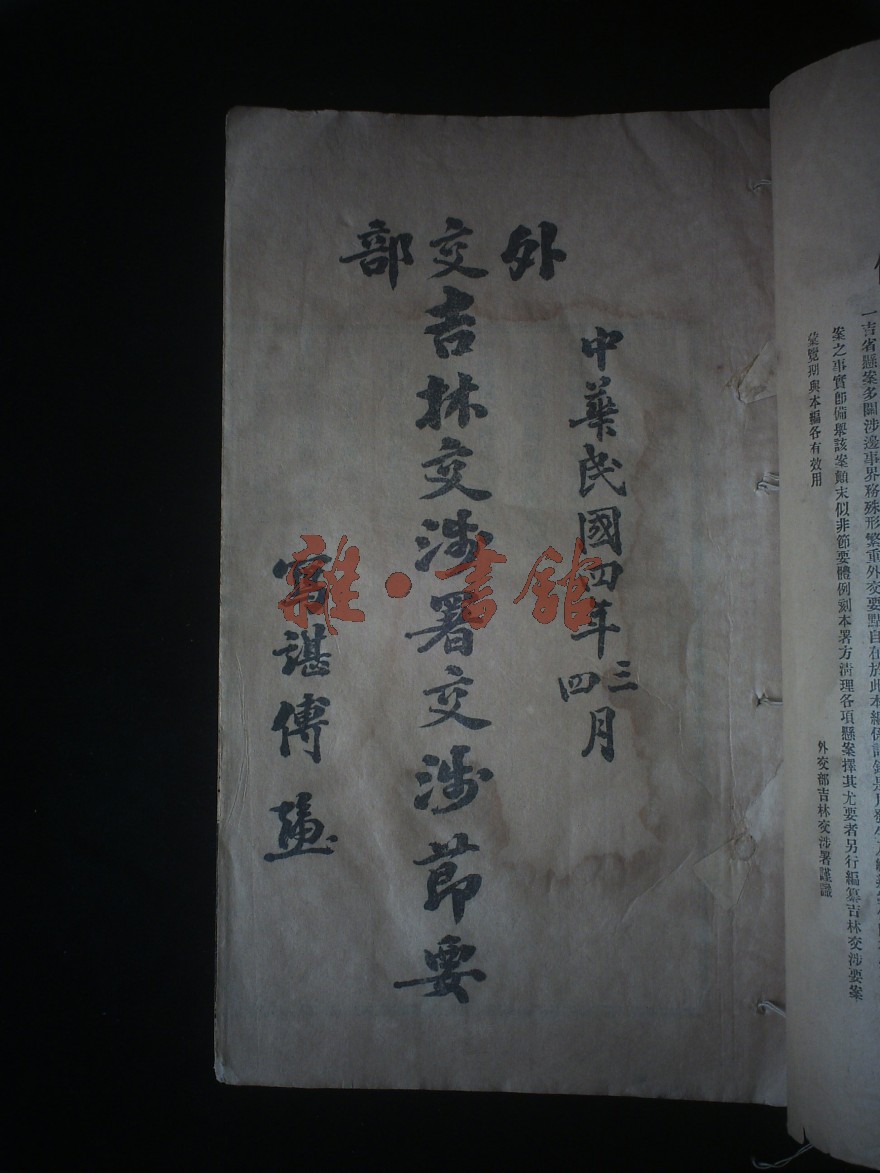 一吉省懸案多關涉邊事界務殊形繁重外交要點自在於此本編係記錄是月發生及
案之事實卽備舉該案顚末似非節要體例刻本署方清理各項懸案擇其尤要者另行編纂吉林交涉要案
彙覽期與本編各有效用
外交部吉林交涉署謹識
中華民國四年三四月
外交部
吉林交涉署交涉節要
諶傅
雜·書館